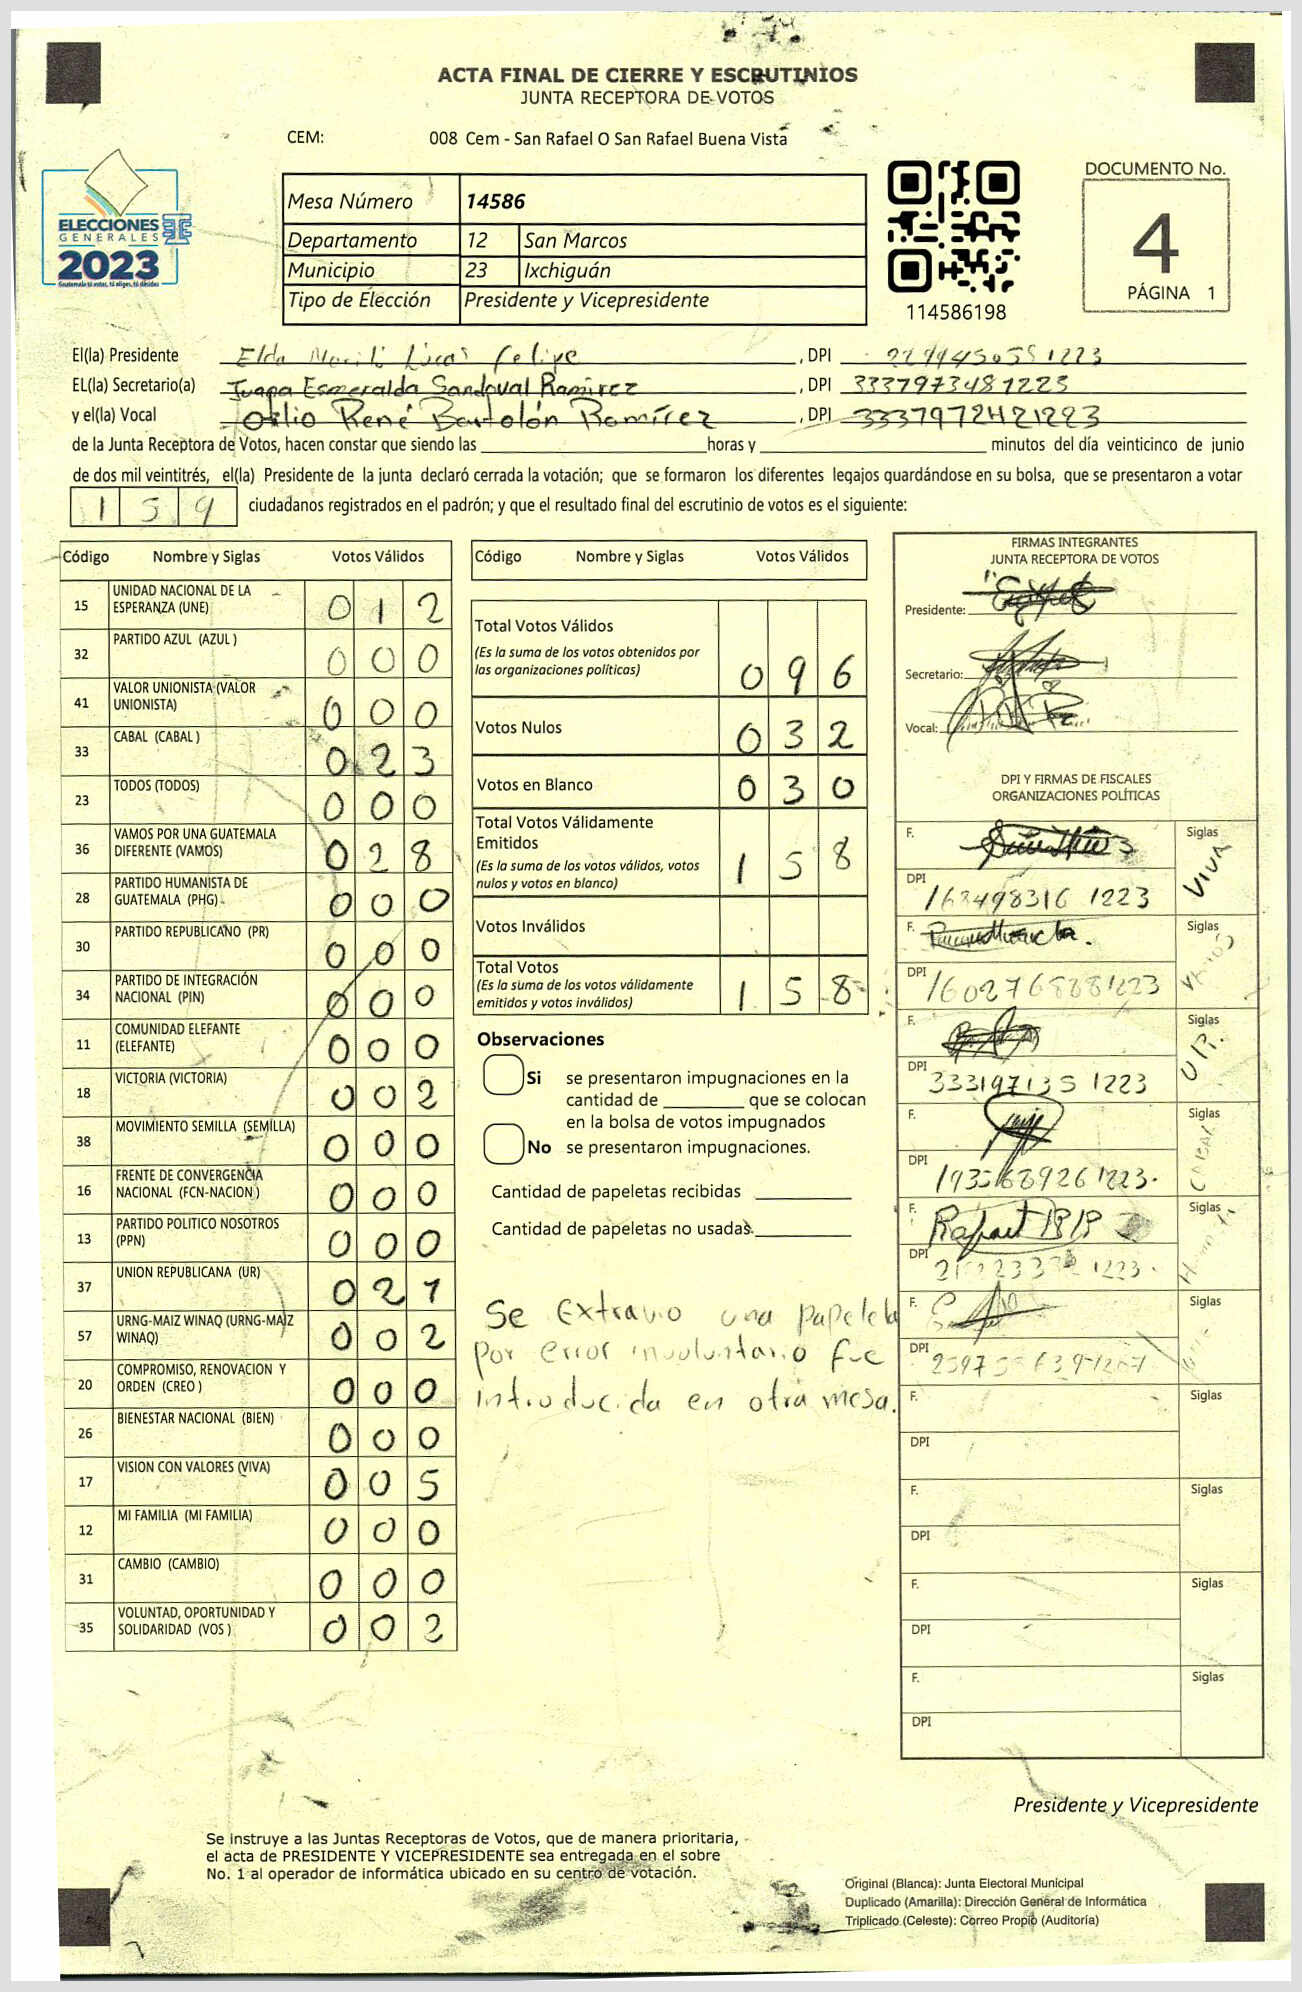 ACTA FINAL DE CIERRE Y ESCRUTINIOS
JUNTA RECEPTORA DE VOTOS
CEM: 008 Cem - San Rafael O San Rafael Buena Vista
ELECCIONES
GENERALES
2023
Guatemala tú votas, tú eliges, tú decides
Mesa Número 14586
Departamento 12 San Marcos
Municipio 23 Ixchiguán
Tipo de Elección Presidente y Vicepresidente
114586198
DOCUMENTO No.
4
PÁGINA 1
El(la) Presidente Elda Lucas Felipe, DPI
EL(la) Secretario(a) Juana Esmeralda Sandoval Ramirez, DPI 3337973481223
y el(la) Vocal Oslio René Bartolón Ramírez, DPI 3337972421223
de la Junta Receptora de Votos, hacen constar que siendo las horas y minutos del día veinticinco de junio
de dos mil veintitrés, el(la) Presidente de la junta declaró cerrada la votación; que se formaron los diferentes legajos guardándose en su bolsa, que se presentaron a votar
159 ciudadanos registrados en el padrón; y que el resultado final del escrutinio de votos es el siguiente:
Código Nombre y Siglas Votos Válidos
15 UNIDAD NACIONAL DE LA ESPERANZA (UNE) 012
32 PARTIDO AZUL (AZUL ) 000
41 VALOR UNIONISTA (VALOR UNIONISTA) 000
33 CABAL (CABAL ) 023
23 TODOS (TODOS) 000
36 VAMOS POR UNA GUATEMALA DIFERENTE (VAMOS) 028
28 PARTIDO HUMANISTA DE GUATEMALA (PHG) 000
30 PARTIDO REPUBLICANO (PR) 000
34 PARTIDO DE INTEGRACIÓN NACIONAL (PIN) 000
11 COMUNIDAD ELEFANTE (ELEFANTE) 000
18 VICTORIA (VICTORIA) 002
38 MOVIMIENTO SEMILLA (SEMILLA) 000
16 FRENTE DE CONVERGENCIA NACIONAL (FCN-NACION ) 000
13 PARTIDO POLITICO NOSOTROS (PPN) 000
37 UNION REPUBLICANA (UR) 021
57 URNG-MAIZ WINAQ (URNG-MAIZ WINAQ) 002
20 COMPROMISO, RENOVACION Y ORDEN (CREO ) 000
26 BIENESTAR NACIONAL (BIEN) 000
17 VISION CON VALORES (VIVA) 005
12 MI FAMILIA (MI FAMILIA) 000
31 CAMBIO (CAMBIO) 000
35 VOLUNTAD, OPORTUNIDAD Y SOLIDARIDAD (VOS ) 002
Código Nombre y Siglas Votos Válidos
Total Votos Válidos
(Es la suma de los votos obtenidos por
las organizaciones políticas) 096
Votos Nulos 032
Votos en Blanco 030
Total Votos Válidamente
Emitidos
(Es la suma de los votos válidos, votos
nulos y votos en blanco) 158
Votos Inválidos
Total Votos
(Es la suma de los votos válidamente
emitidos y votos inválidos) 158
Observaciones
Si se presentaron impugnaciones en la
cantidad de que se colocan
en la bolsa de votos impugnados
No se presentaron impugnaciones.
Cantidad de papeletas recibidas
Cantidad de papeletas no usadas.
Se Extravio una papeleta
por error involuntario fue
introducida en otra mesa.
FIRMAS INTEGRANTES
JUNTA RECEPTORA DE VOTOS
Presidente:
Secretario:
Vocal:
DPI Y FIRMAS DE FISCALES
ORGANIZACIONES POLÍTICAS
F. Siglas VIVA
DPI
F. Siglas
DPI 1602768881223
F. Siglas
DPI 333197135 1223
F. Siglas CABAL
DPI
F. Rafael Siglas
DPI
F. Siglas
DPI
F. Siglas
DPI
F. Siglas
DPI
F. Siglas
DPI
F. Siglas
DPI
Presidente y Vicepresidente
Se instruye a las Juntas Receptoras de Votos, que de manera prioritaria,
el acta de PRESIDENTE Y VICEPRESIDENTE sea entregada en el sobre
No. 1 al operador de informática ubicado en su centro de votación.
Original (Blanca): Junta Electoral Municipal
Duplicado (Amarilla): Dirección General de Informática
Triplicado (Celeste): Correo Propio (Auditoría)